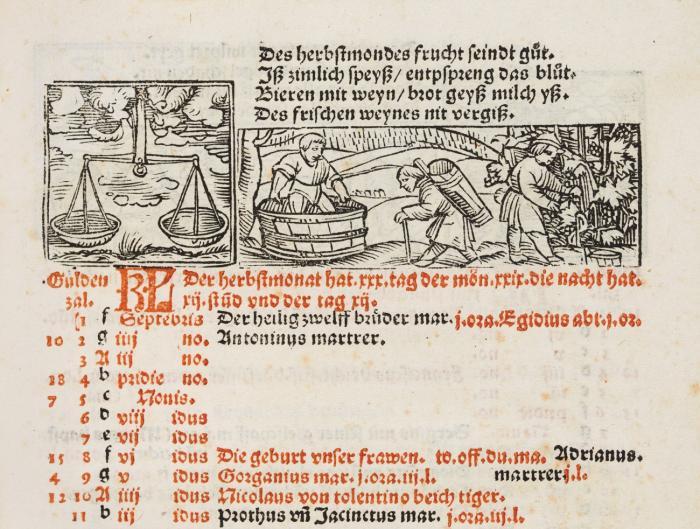 Des herbstmondes frucht seindt gůt.
Iß zimlich speyß/ entpspreng das blůt.
Bieren mit weyn/ brot geyß milch yß.
Des frischen weynes nit vergiß.
Gulden zal. KL Der herbstmonat hat. xxx. tag der mön. xxix. die nacht hat. xij. stūd vnd der tag xij.
1 f Septēbris Der heilig zwelff brüder mar. j. ora. Egidius abt. j. or.
10 2 g iiij no. Antoninus martrer.
3 A iij no.
18 4 b pridie no.
7 5 c Nonis.
6 d viij idus
7 e vij idus
15 f vj idus Die geburt vnser frawen. to. off. du. ma. Adrianus.
4 9 g v idus Gorganius mar. j. ora. iij. l. martrer j. l.
12 10 A iiij idus Nicolaus von tolentino beich tiger.
11 b iij idus Prothus vñ Jacinctus mar. j. ora. iij. l.